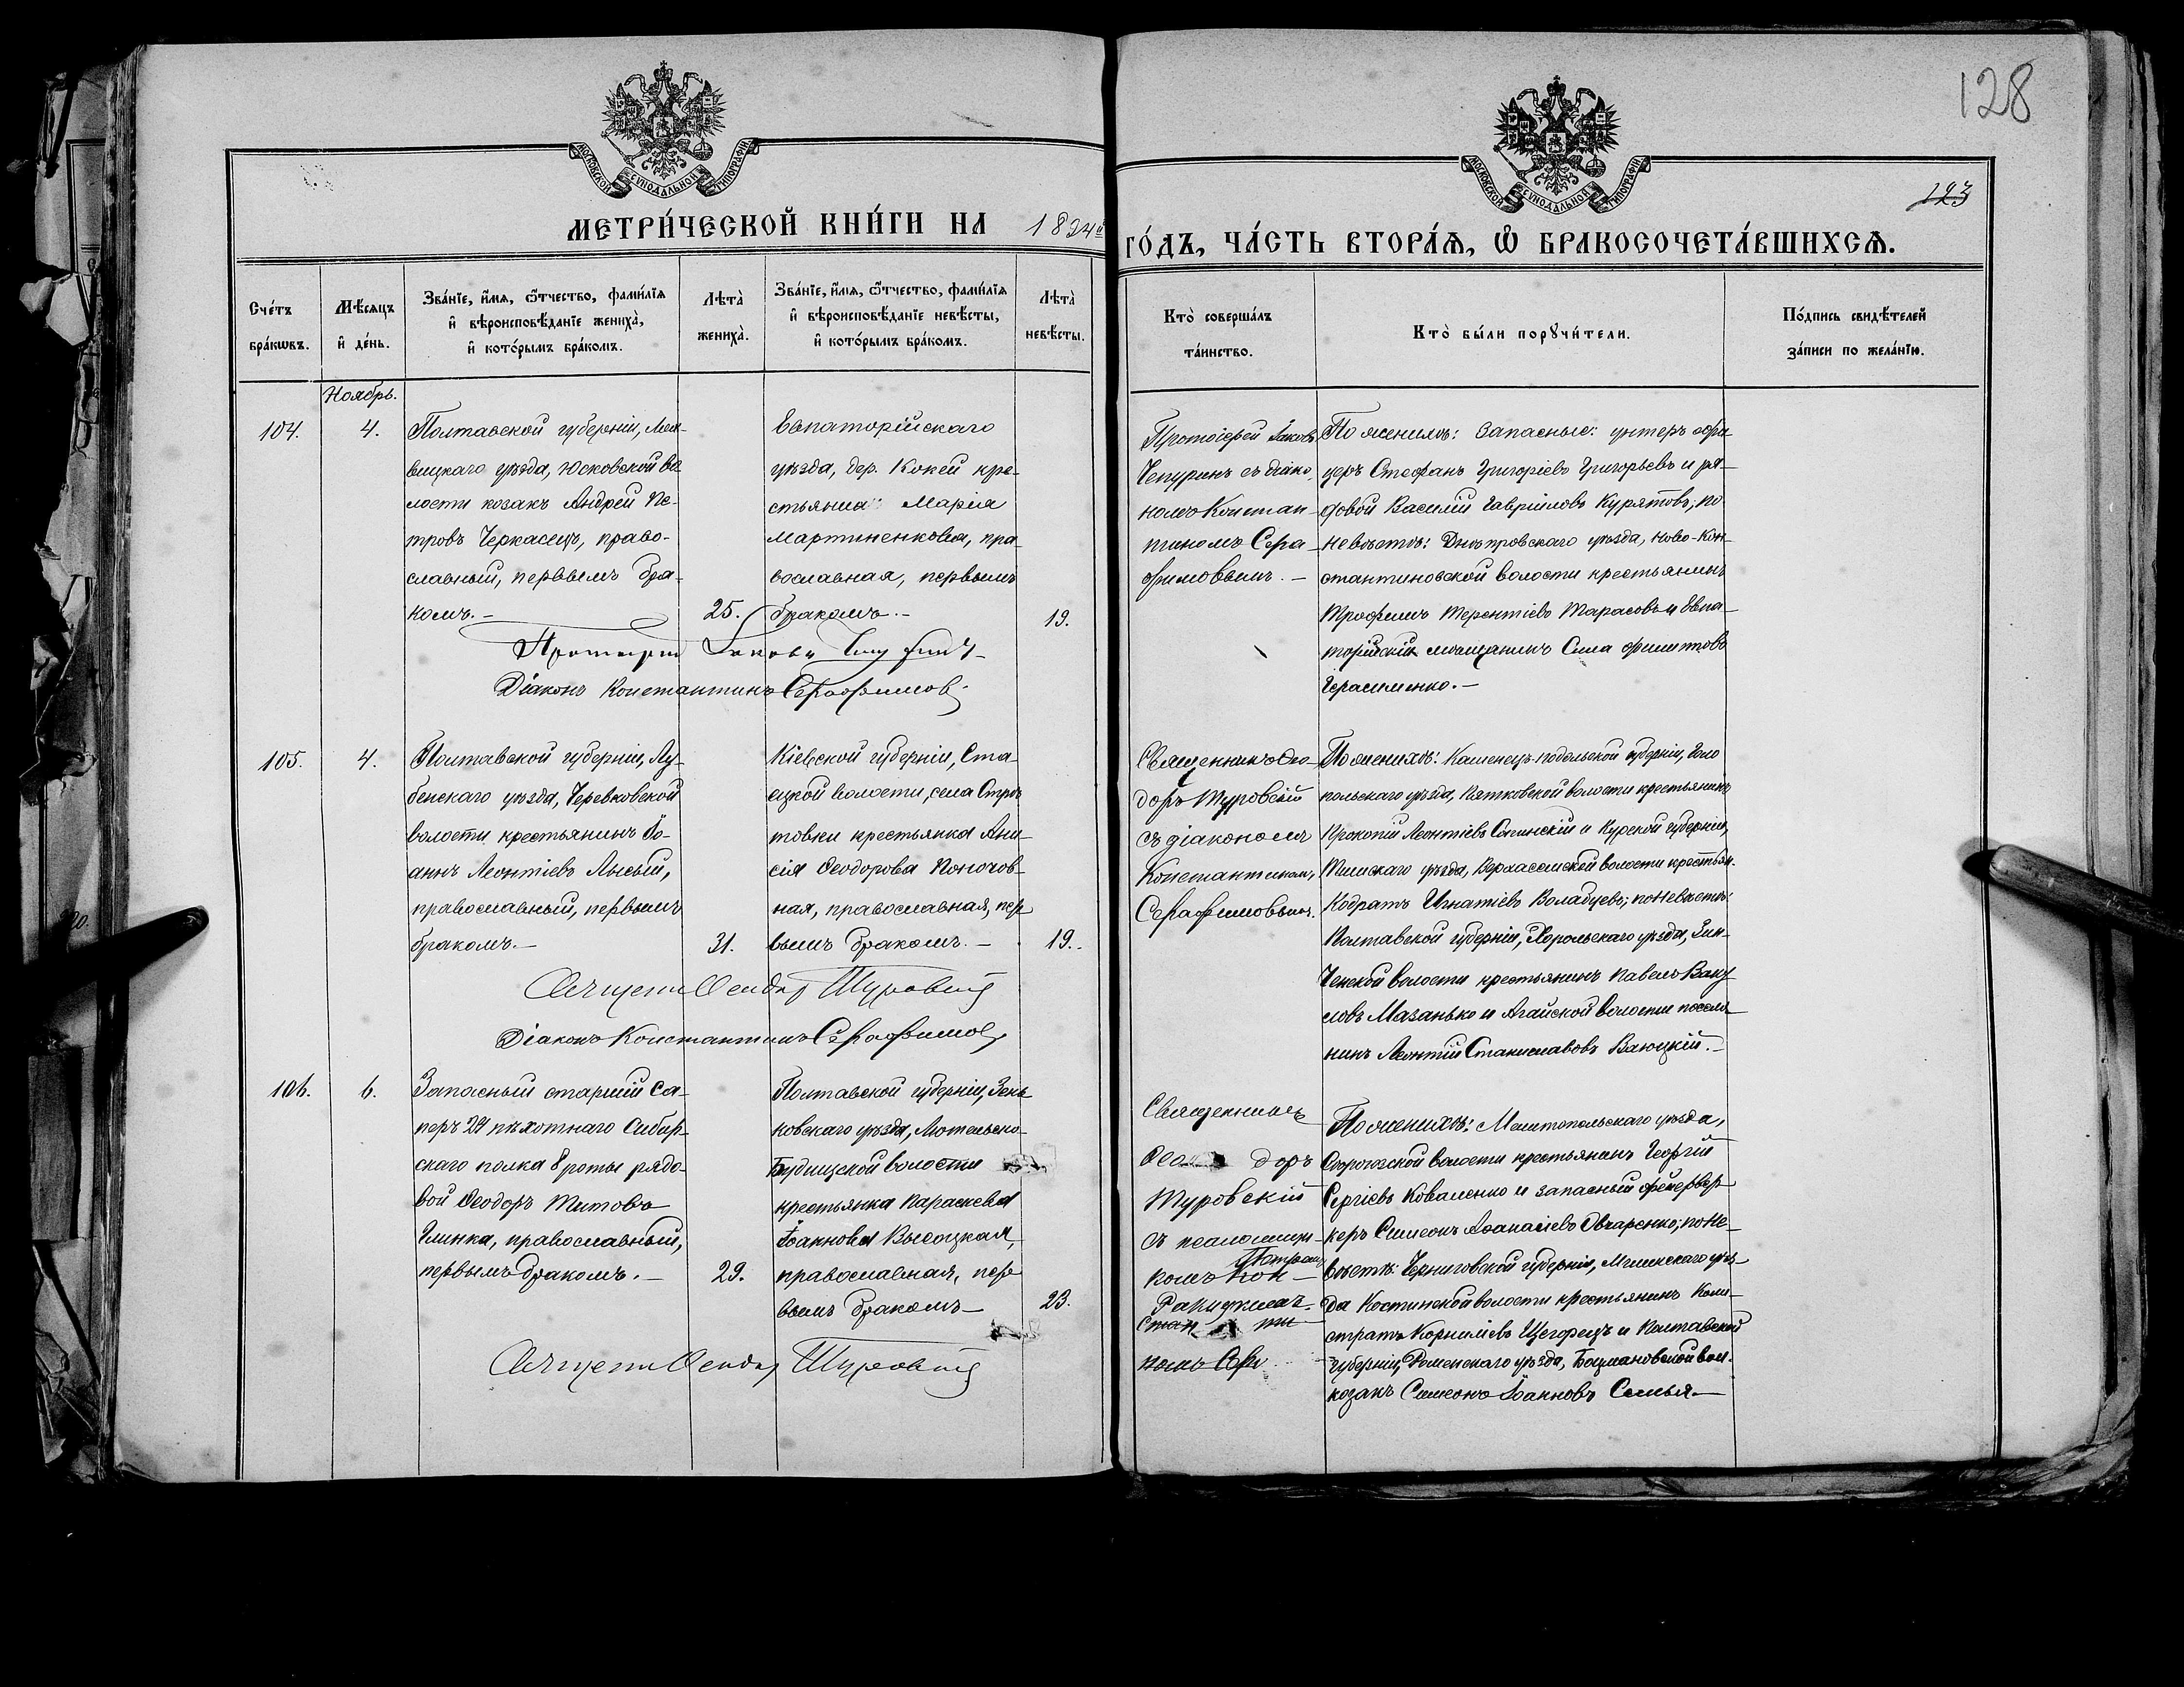 128
123
МОСКОВСКОЙ СѴНОДАЛЬНОЙ ТИПОГРАФІИ
МОСКОВСКОЙ СѴНОДАЛЬНОЙ ТИПОГРАФІИ
МЕТРИ́ЧЕСКОЙ КНИ́ГИ НА 1894й
ГО́ДЪ, ЧА́СТЬ ВТОРА́Ѧ, Ѽ БРАКОСОЧЕТА́ВШИХСѦ.
Сче́тъ
бра́кѡвъ.
Мѣ́сяцъ
и҆ де́нь.
Зва́нїе, и҆́мѧ, ѻ҆́тчество, фами́лїѧ
и҆ вѣроисповѣ́данїе жениха̀,
и҆ кото́рымъ бра́комъ.
Лѣта̀
жениха̀.
Зва́нїе, и҆́мѧ, ѻ҆́тчество, фами́лїѧ
и҆ вѣроисповѣ́данїе невѣ́сты,
и҆ кото́рымъ бра́комъ.
Лѣта̀
невѣ́сты.
Кто̀ соверша́лъ
та́инство.
Кто̀ бы́ли порꙋчи́тели.
По́дпись свидѣ́телей
за́писи по жела́нїю.
Ноябрь.
104.
4.
Полтавской губерніи, Лох-
вицкаго уѣзда, Юсковской во
лости козакъ Андрей Пе-
тровъ Черкасецъ, право-
славный, первымъ бра-
комъ.-
25.
Евпаторійскаго
уѣзда, дер. Кокей кре-
стьянка Марія
Мартиненкова, пра-
вославная, первымъ
бракомъ.-
19.
Протоіерей Іаковъ
Чепуринъ съ діако-
номъ Констан-
тиномъ Сера-
фимовымъ.-
По женихѣ: Запасные: унтеръ офи-
церъ Стефанъ Григоріевъ Григорьевъ и ря-
довой Василій Гавріиловъ Курятовъ; по
невѣстѣ: Днѣпровскаго уѣзда, Ново-Кон-
стантиновской волости крестьянинъ
Трофимъ Терентіевъ Тарасовъ и Евпа-
торійскій мѣщанинъ Сила Филиповъ
Герасименко.-
Протоіерей Іаковъ Чепуринъ
Діаконъ Константинъ Серафимовъ
105.
4.
Полтавской губерніи, Лу-
бенскаго уѣзда, Черевковской
волости крестьянинъ Іо-
аннъ Леонтіевъ Лысый,
православный, первымъ
бракомъ.-
31.
Кіевской губерніи, Ста-
вцкой волости, села Остро
товки крестьянка Ани-
сія Ѳеодорова Поночов-
ная, православная, пер
вымъ бракомъ.-
19.-
Священникъ Ѳео-
доръ Туровскій
съ діакономъ
Константиномъ
Серафимовымъ.
По женихѣ: Каменецъ-Подольской губерніи, Голо
польскаго уѣзда, Пятковской волости крестьянинъ
Прокопій Леонтіевъ Сопинскій и Курской губерніи,
Тимскаго уѣзда, Верхосемской волости крестьян.
Кодратъ Игнатіевъ Воладцевъ; по невѣстѣ:
Полтавской губерніи, Хорольскаго уѣзда, Зин-
ченской волости крестьянинъ Павелъ Ваку
ловъ Мазанько и Агайской волости поселя-
нинъ Леонтій Станиславовъ Ваюцкій.-
Священ. Ѳеодоръ Туровскій
Діаконъ Константинъ Серафимовъ
106.
6.
Запасный старшій са-
перъ 29 пѣхотнаго Сибир-
скаго полка 8 роты рядо-
вой Ѳеодоръ Титовъ
Глинка, православный,
первымъ бракомъ.-
29.
Полтавской губерніи, Зень
ковскаго уѣзда, Лютенско-
Будищской волости
крестьянка Параскева
Іоаннова Высоцкая,
православная, пер
вымъ бракомъ-
23.
Священникъ
Ѳео доръ
Туровскій
съ псаломщи-
комъ Кон- Петромъ
Ракиджіевъ.
стан ти
номъ Сер
По женихѣ: Мелитопольскаго уѣзда,
Сѣрогозской волости крестьянинъ Георгій
Сергіевъ Коваленко и запасный фейервер-
керъ Симеонъ Аѳанасіевъ Овчаренко; по не-
вѣстѣ: Черниговской губерніи, Мглинскаго уѣз-
да Костинской волости крестьянинъ Коли-
стратъ Корниліевъ Щегорецъ и Полтавской
губерніи, Роменскаго уѣзда, Бацмановской вол.
козакъ Симеонъ Іоанновъ Семья-
Священ. Ѳеодоръ Туровскій